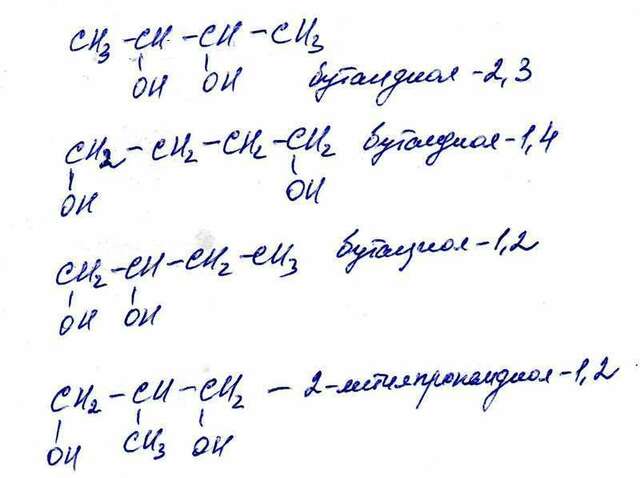 CH₃ – CH – CH – CH₃
OH OH бутандиол – 2,3
CH₂ – CH₂ – CH₂ – CH₂ бутандиол – 1,4
OH OH
CH₂ – CH – CH₂ – CH₃ бутандиол – 1,2
OH OH
CH₂ – CH – CH₂ – 2-метилпропандиол – 1,2
OH CH₃ OH